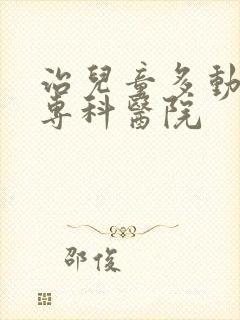 治兒童多動
專科醫院
邵俊